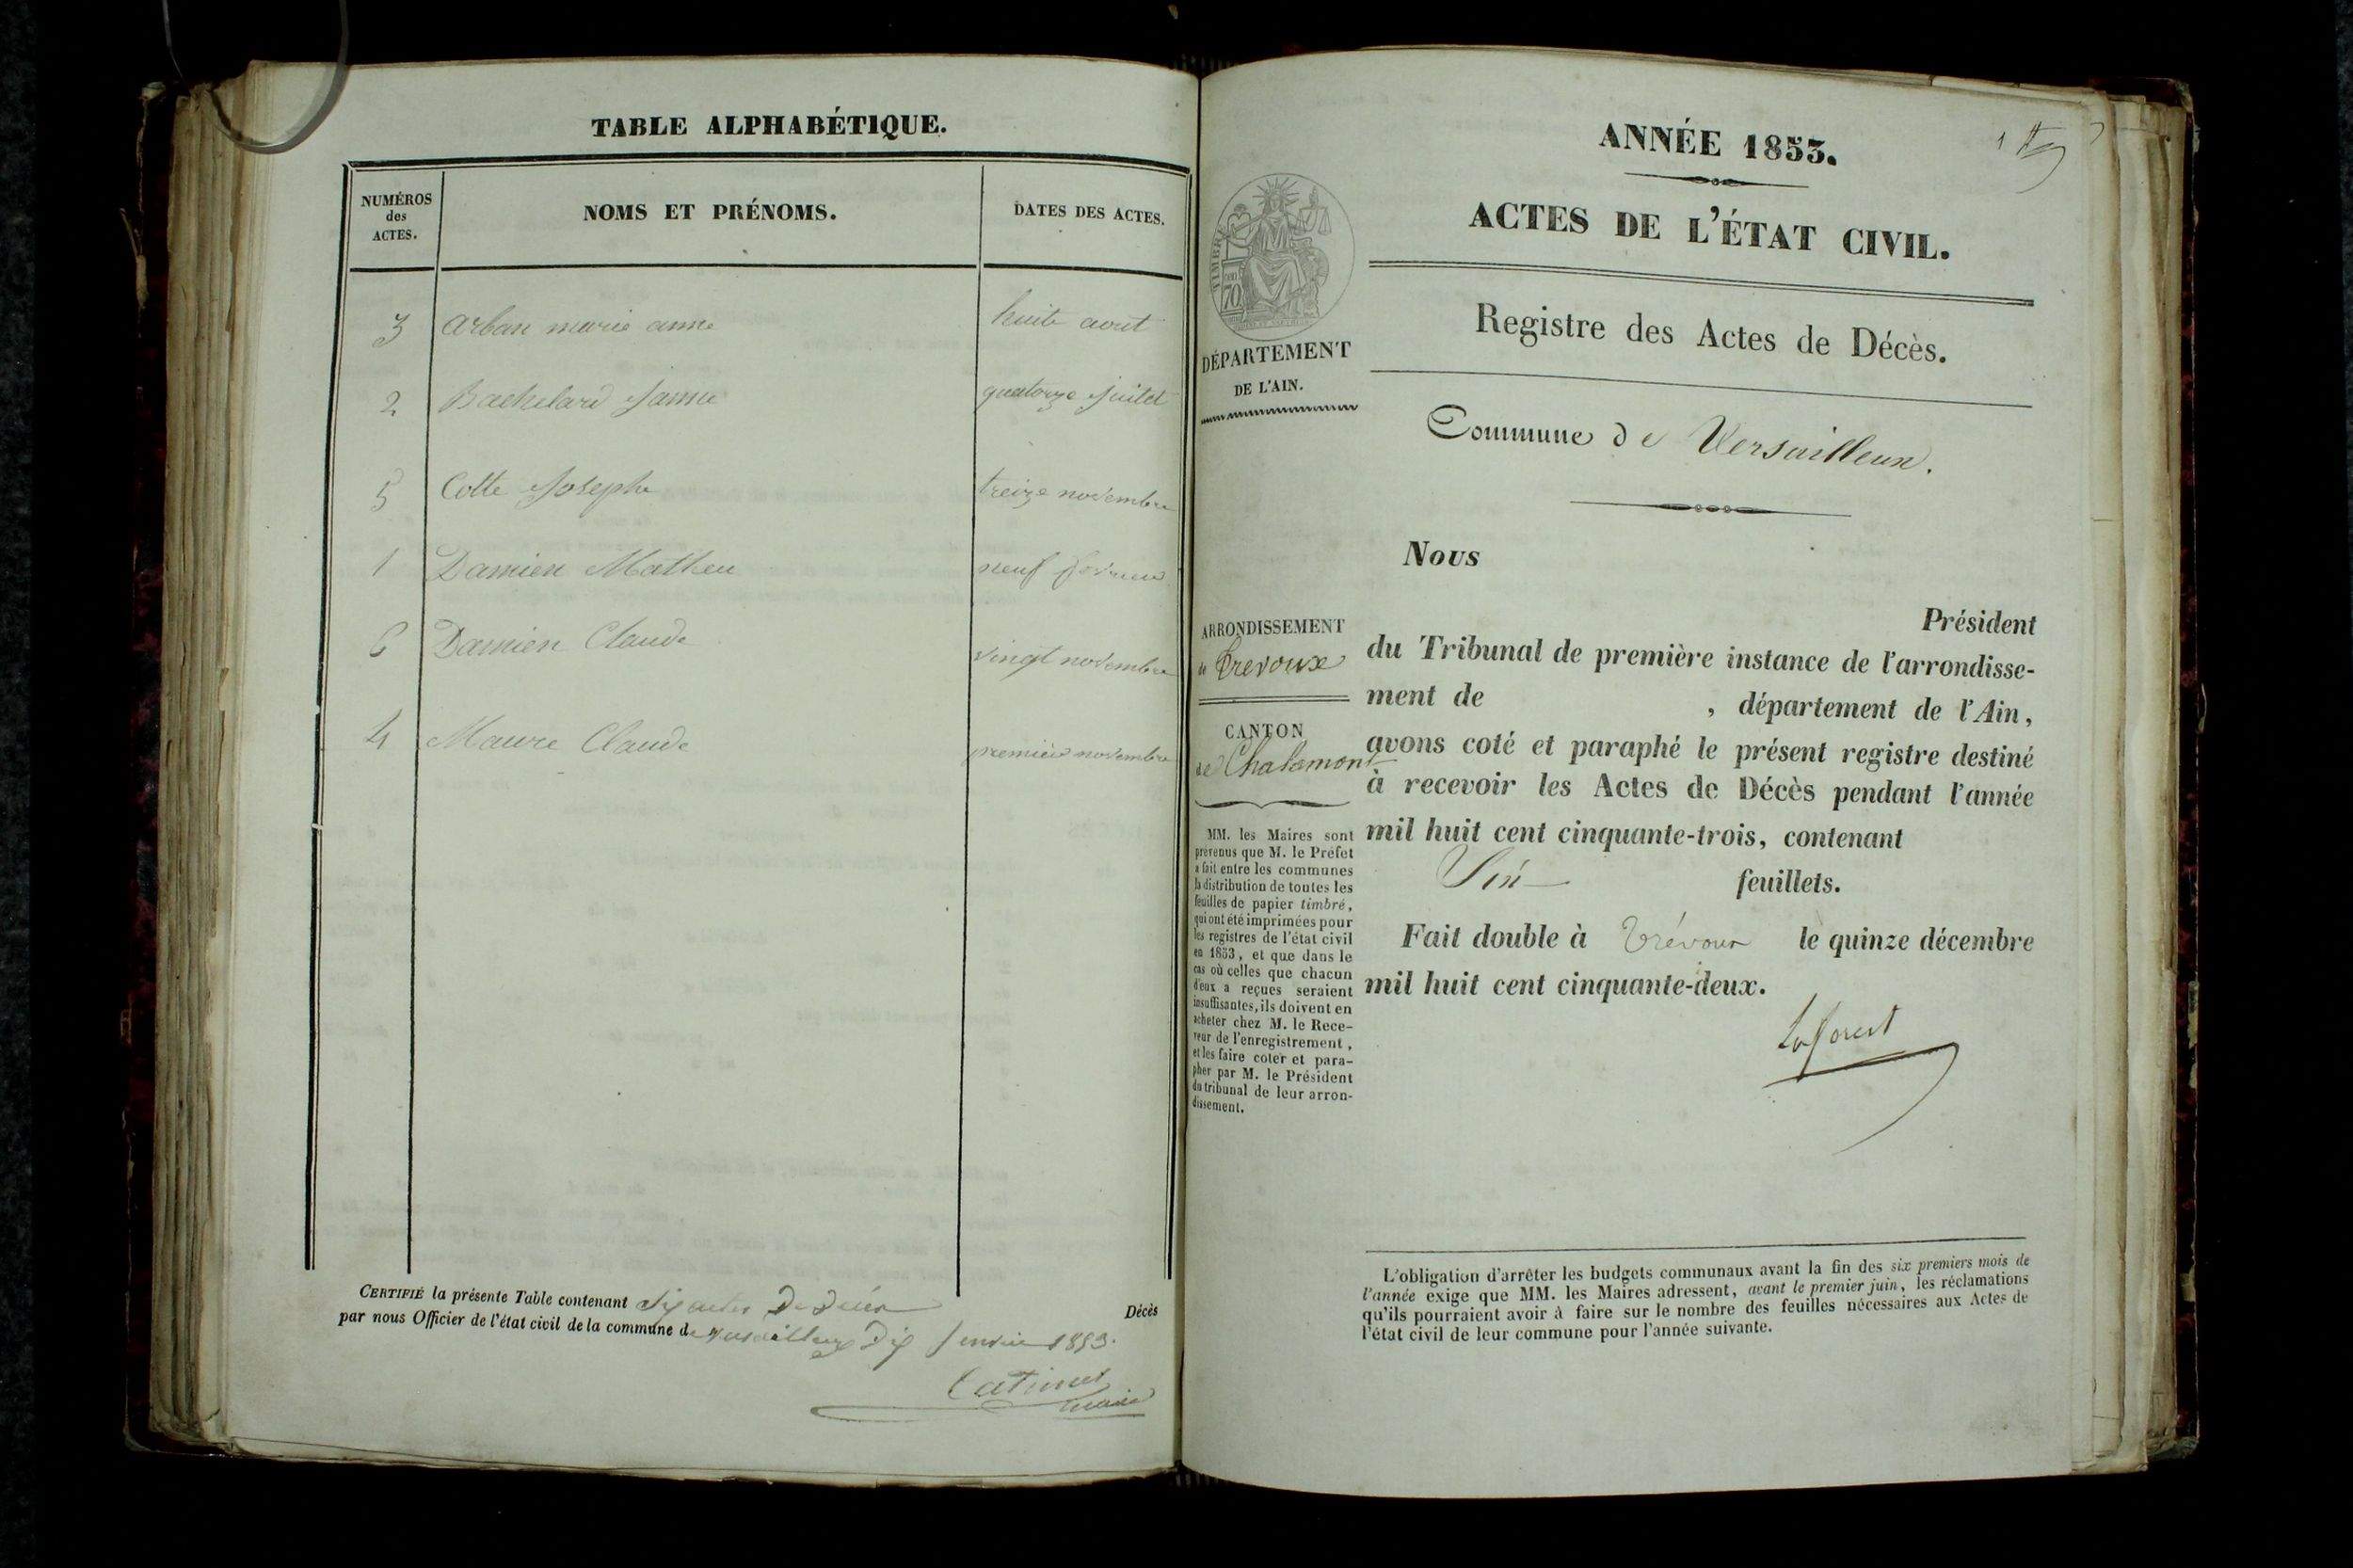 TABLE ALPHABÉTIQUE.
NUMÉROS
des
ACTES.
NOMS ET PRÉNOMS.
DATES DES ACTES.
3 Arban marie anne huite aout
2 Bachelard Janne quatorze Juilet
5 Cotte Josephe treize novembre
1 Damien Matheu neuf
6 Damien Claude vingt novembre
4 Maure Claude premier novembre
CERTIFIÉ la présente Table contenant Six actes De décés Décès
par nous Officier de l'état civil de la commune de versailleux Dix Janvier 1853.
maire
ANNÉE 1853.
ACTES DE L'ÉTAT CIVIL.
TIMBRE
70
DÉPARTEMENT
DE L'AIN.
Registre des Actes de Décès.
Commune de Versailleux.
Nous
Président
ARRONDISSEMENT
de Trevoux
CANTON
de Chalamont
du Tribunal de première instance de l'arrondisse-
ment de , département de l'Ain,
avons coté et paraphé le présent registre destiné
à recevoir les Actes de Décès pendant l'année
mil huit cent cinquante-trois, contenant
feuillets.
Fait double à Trévoux le quinze décembre
mil huit cent cinquante-deux.
Laforest
MM. les Maires sont
prévenus que M. le Préfet
a fait entre les communes
la distribution de toutes les
feuilles de papier timbré,
qui ont été imprimées pour
les registres de l'état civil
en 1853, et que dans le
cas où celles que chacun
d'eux a reçues seraient
insuffisantes, ils doivent en
acheter chez M. le Rece-
veur de l'enregistrement,
et les faire coter et para-
pher par M. le Président
du tribunal de leur arron-
dissement.
L'obligation d'arrêter les budgets communaux avant la fin des six premiers mois de
l'année exige que MM. les Maires adressent, avant le premier juin, les réclamations
qu'ils pourraient avoir à faire sur le nombre des feuilles nécessaires aux Actes de
l'état civil de leur commune pour l'année suivante.